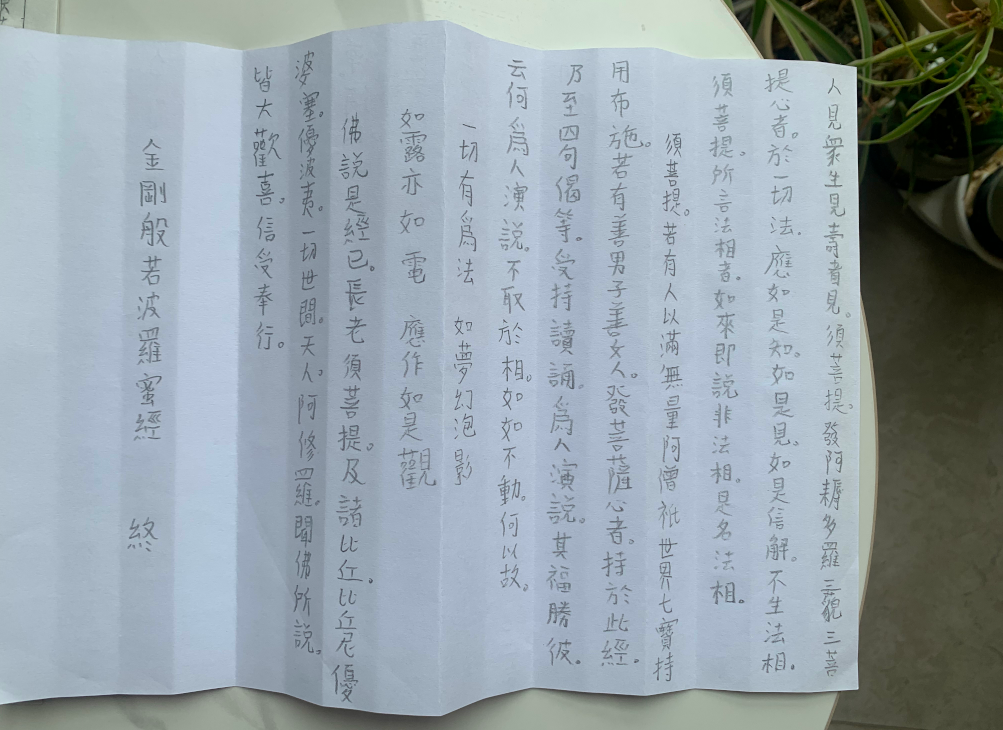 人見衆生見壽者見。須菩提。發阿耨多羅三藐三菩
提心者。於一切法。應如是知。如是見。如是信解。不生法相。
須菩提。所言法相者。如來即說非法相。是名法相。
須菩提。若有人以滿無量阿僧祇世界七寶持
用布施。若有善男子善女人。發菩薩心者。持於此經。
乃至四句偈等。受持讀誦。爲人演説。其福勝彼。
云何爲人演説。不取於相。如如不動。何以故。
一切有爲法 如夢幻泡影
如露亦如電 應作如是觀
佛説是經已。長老須菩提。及諸比丘。比丘尼優
婆塞。優波夷。一切世間。天人。阿修羅。聞佛所説。
皆大歡喜。信受奉行。
金剛般若波羅蜜經 終